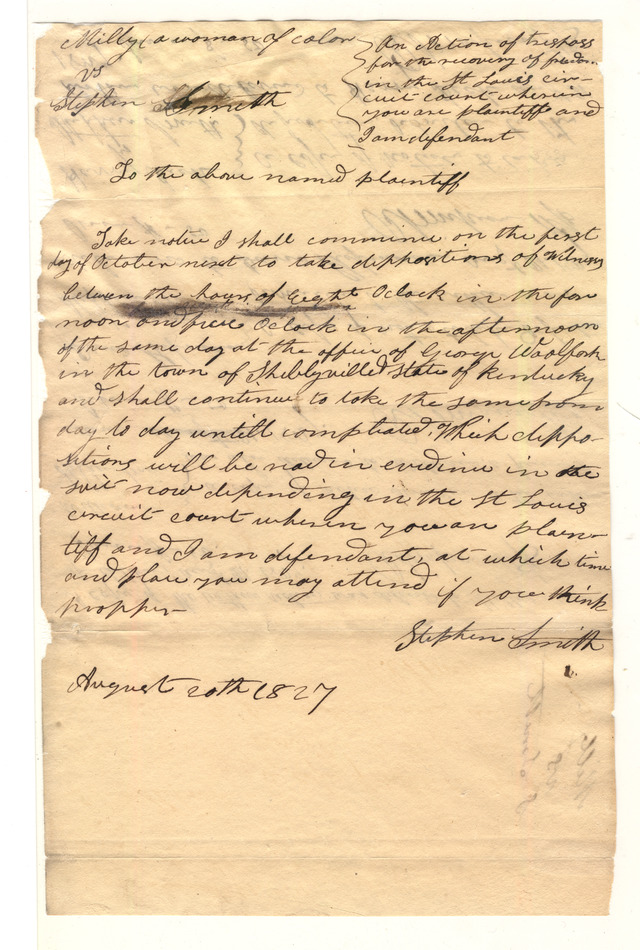 Milly (a woman of color
vs
Stephen Smith
An Action of trespass
for the recovery of freedom
in the St Louis cir-
cuit court wherein
you are plaintiff and
I am defendant
To the above named plaintiff
Take notice I shall commince on the first
day of October next to take deppositions of Witnesses
between the hours of Eeight Oclock in the fore
noon and five Oclock in the afternoon
of the same day at the office of George Woolfork
in the town of Shelbyville State of Kentucky
and shall continue to take the same from
day to day untill compleated. Which deppo-
sitions will be read in evidince in the
suit now depending in the St Louis
circuit court wherein you are plain-
tiff and I am defendant, at which time
and place you may attend if you think
propper
Stephen Smith
August 20th 1827